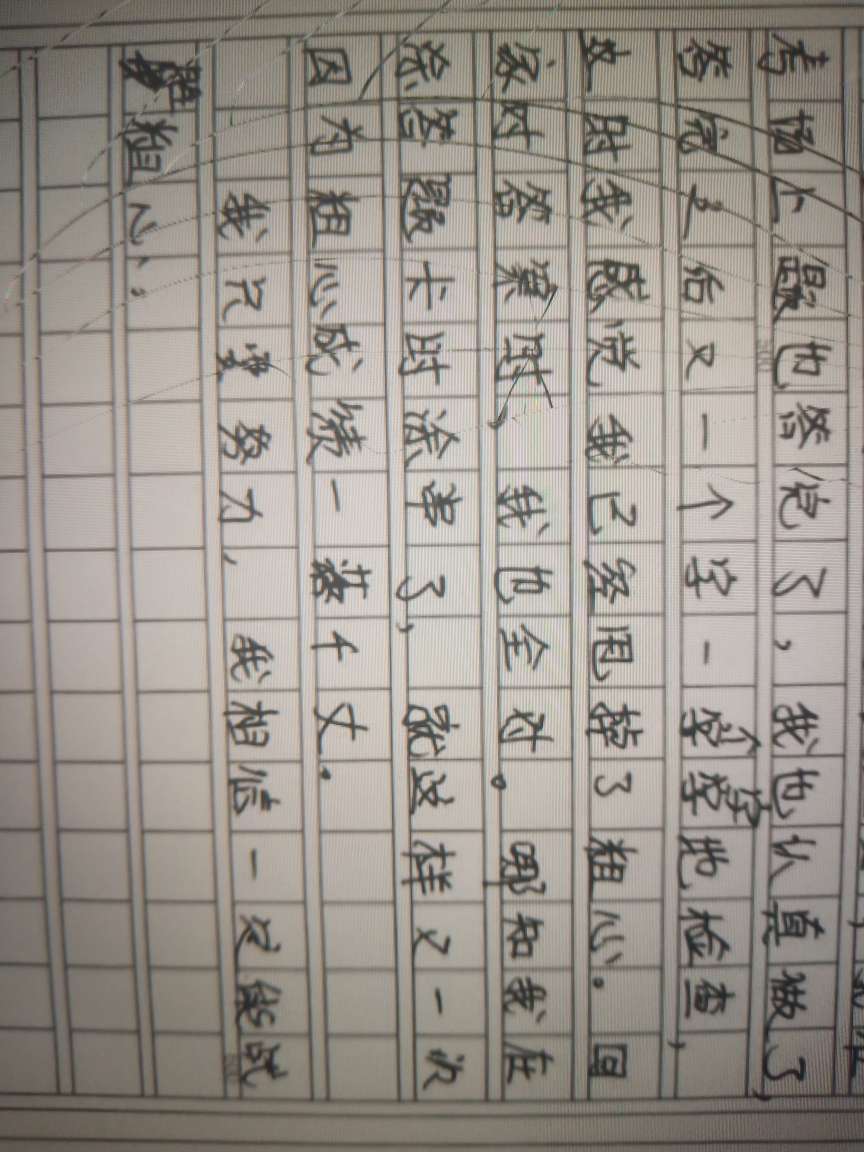 考场上题也答完了，我也认真做了，
答完之后又一个字一个字地检查，
这时我感觉我已经甩掉了粗心。回
家对答案时，我也全对。哪知我在
涂答题卡时涂串了，就这样又一次
因为粗心成绩一落千丈.
我只要努力，我相信一定能战
胜粗心。